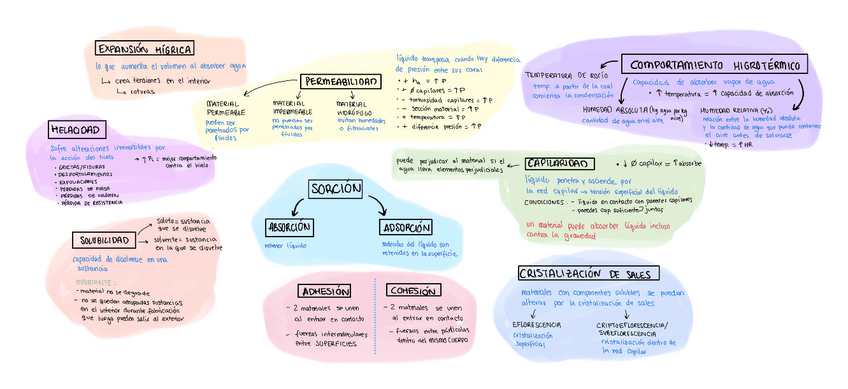 EXPANSIÓN HÍGRICA
lo que aumenta el volumen al absorber agua
↳ crea tensiones en el interior
↳ roturas
líquido transpasa cuando hay diferencia
de presión entre sus caras
PERMEABILIDAD
• + ha = ↑ P
• + ø capilares = ↑ P
• - tortuosidad capilares = ↑ P
• - sección material = ↑ P
• + temperatura = ↑ P
• + diferencia presión = ↑ P
MATERIAL
PERMEABLE
pueden ser
penetrados por
fluidos
MATERIAL
IMPERMEABLE
no pueden ser
penetrados por
fluidos
MATERIAL
HIDRÓFUGO
evitan humedades
o filtraciones
COMPORTAMIENTO HIGROTÉRMICO
Capacidad de absorber vapor de agua
• ↑ temperatura = ↑ capacidad de absorción
TEMPERATURA DE ROCÍO
temp. a partir de la cual
comienza la condensación
HUMEDAD ABSOLUTA (kg agua por kg aire)
cantidad de agua en el aire
HUMEDAD RELATIVA (%)
relación entre la humedad absoluta
y la cantidad de agua que puede contener
el aire antes de saturarse
↓ temp. = ↑ HR
HELACIDAD
Sufre alteraciones irreversibles por
la acción del hielo
→ ↑ = mejor comportamiento
contra el hielo
• GRIETAS/FISURAS
• EXFOLIACIONES
• PÉRDIDAS DE MASA
• PÉRDIDAS DE VOLUMEN
• PÉRDIDA DE RESISTENCIA
puede perjudicar al material si el
agua lleva elementos perjudiciales
CAPILARIDAD
• ↓ Ø capilar = ↑ absorbe
líquido penetra y asciende por
la red capilar → tensión superficial del líquido
CONDICIONES: - líquido en contacto con paredes capilares
- paredes cap. suficiente juntas
un material puede absorber líquido incluso
contra la gravedad
SORCIÓN
ABSORCIÓN
retener líquido
ADSORCIÓN
moléculas del líquido son
retenidas en la superficie
SOLUBILIDAD
Soluto = sustancia
que se disuelve
solvente = sustancia
en la que se disuelve
capacidad de disolverse en una
sustancia
- material no se degrade
- no se quedan atrapadas sustancias
en el interior durante fabricación
que luego pueden salir al exterior
ADHESIÓN
- 2 materiales se unen
al entrar en contacto
- fuerzas intermoleculares
entre SUPERFICIES
COHESIÓN
- 2 materiales se unen
al entrar en contacto
- fuerzas entre partículas
dentro del MISMO CUERPO
CRISTALIZACIÓN DE SALES
materiales con componentes solubles se puedan
alterar por la cristalización de sales
EFLORESCENCIA
cristalización
superficial
CRIPTOEFLORESCENCIA/
SUBEFLORESCENCIA
cristalización dentro de
la red capilar